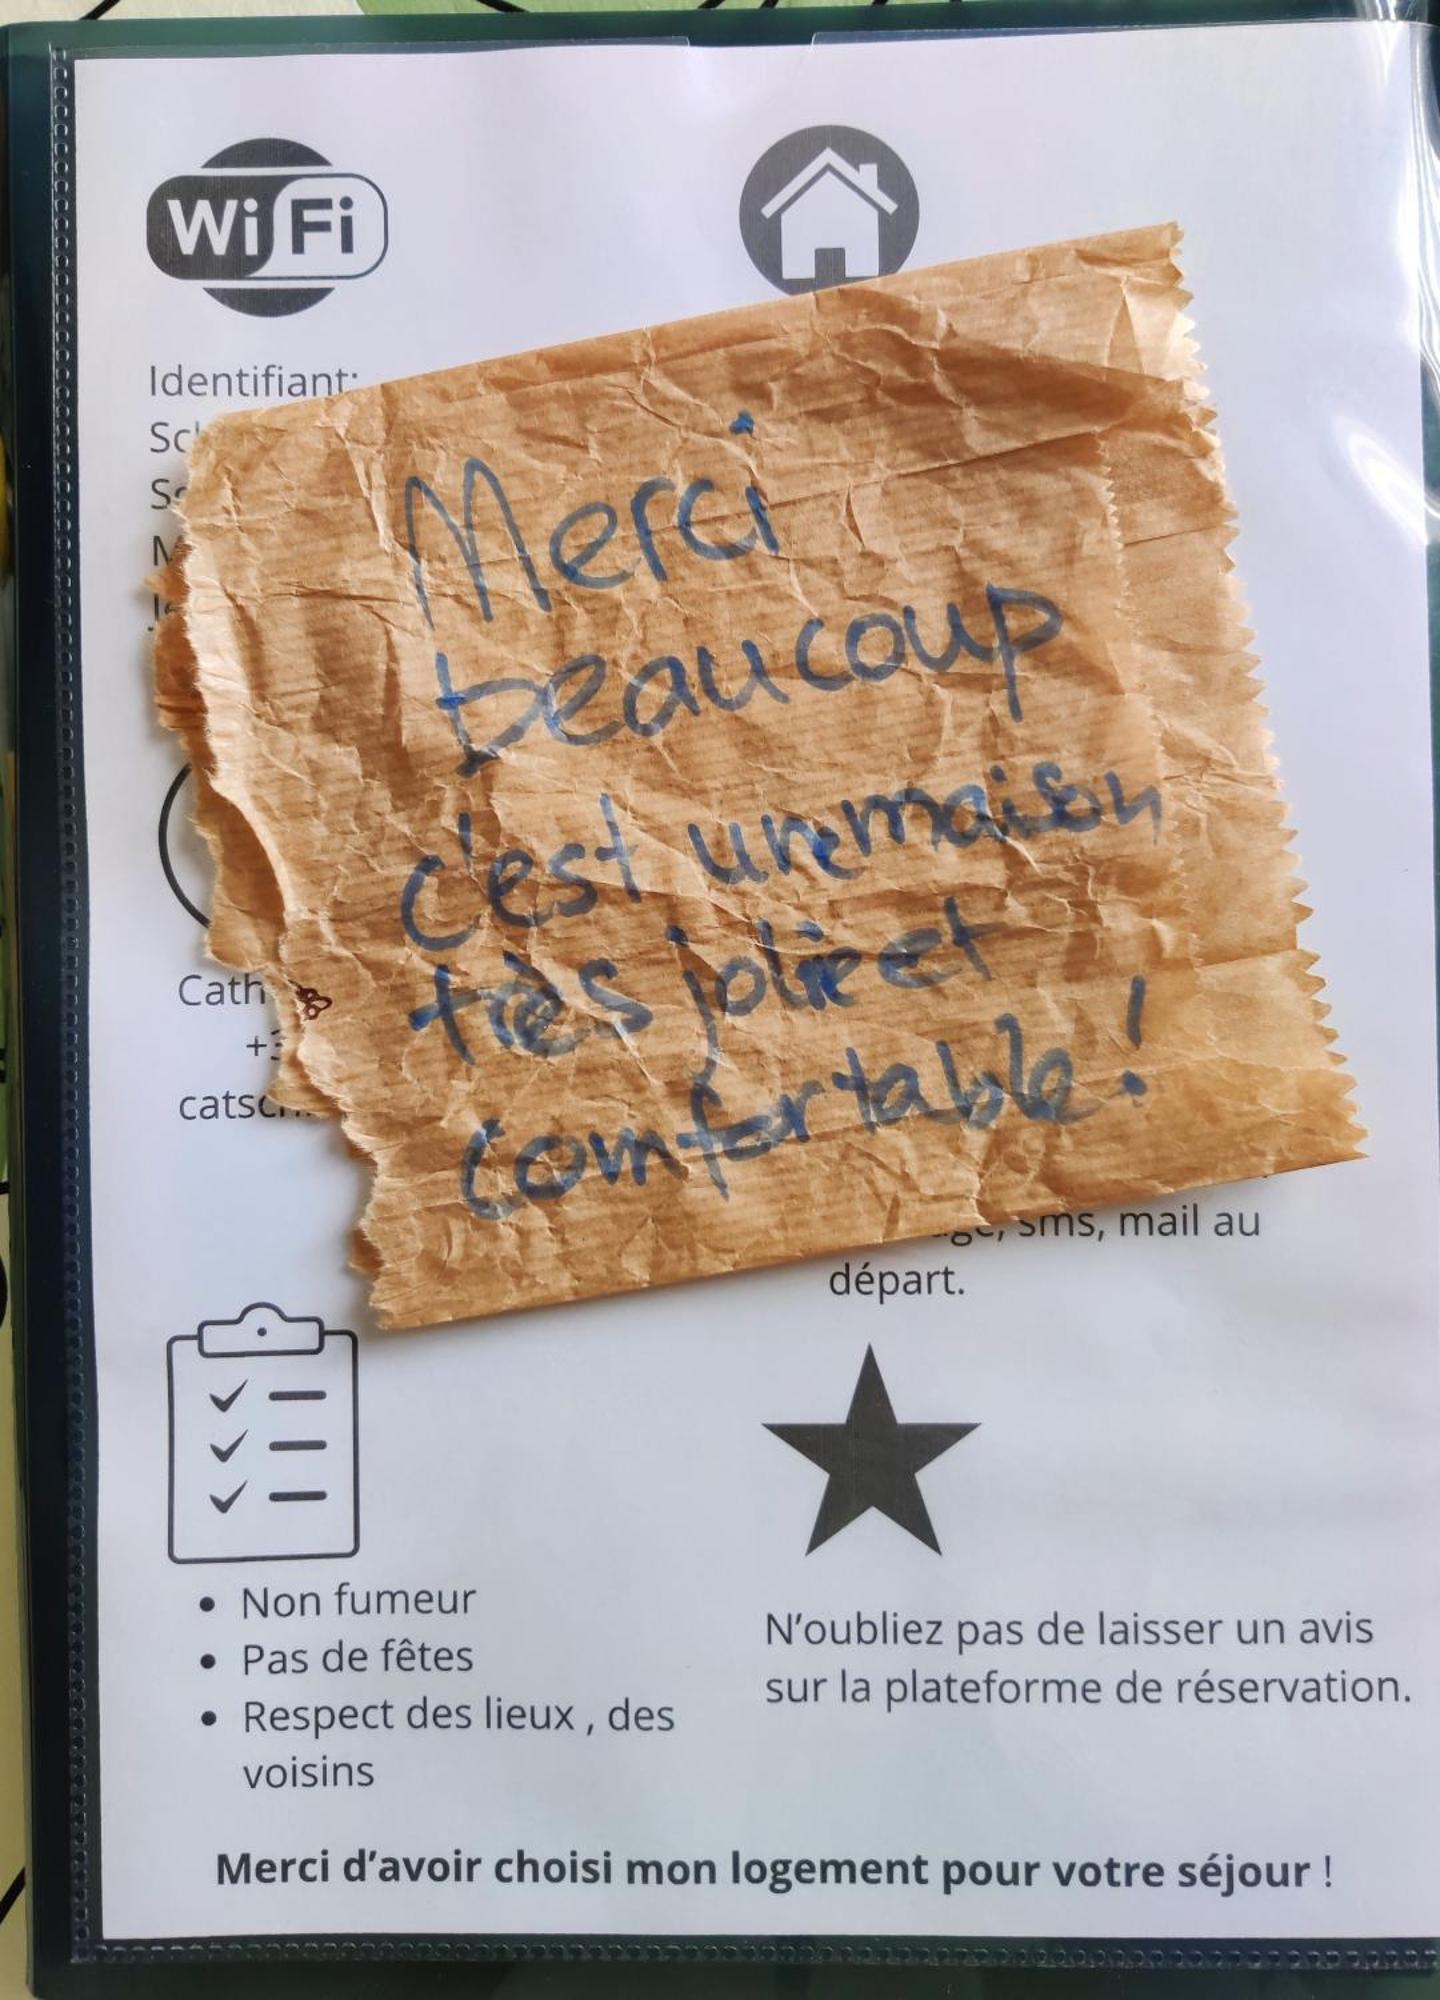 WiFi
Identifiant:
Merci
beaucoup
c'est une maison
très jolie et
comfortable!
Cath
+3
départ.
sms, mail au
Non fumeur
Pas de fêtes
Respect des lieux , des
voisins
N'oubliez pas de laisser un avis
sur la plateforme de réservation.
Merci d'avoir choisi mon logement pour votre séjour !